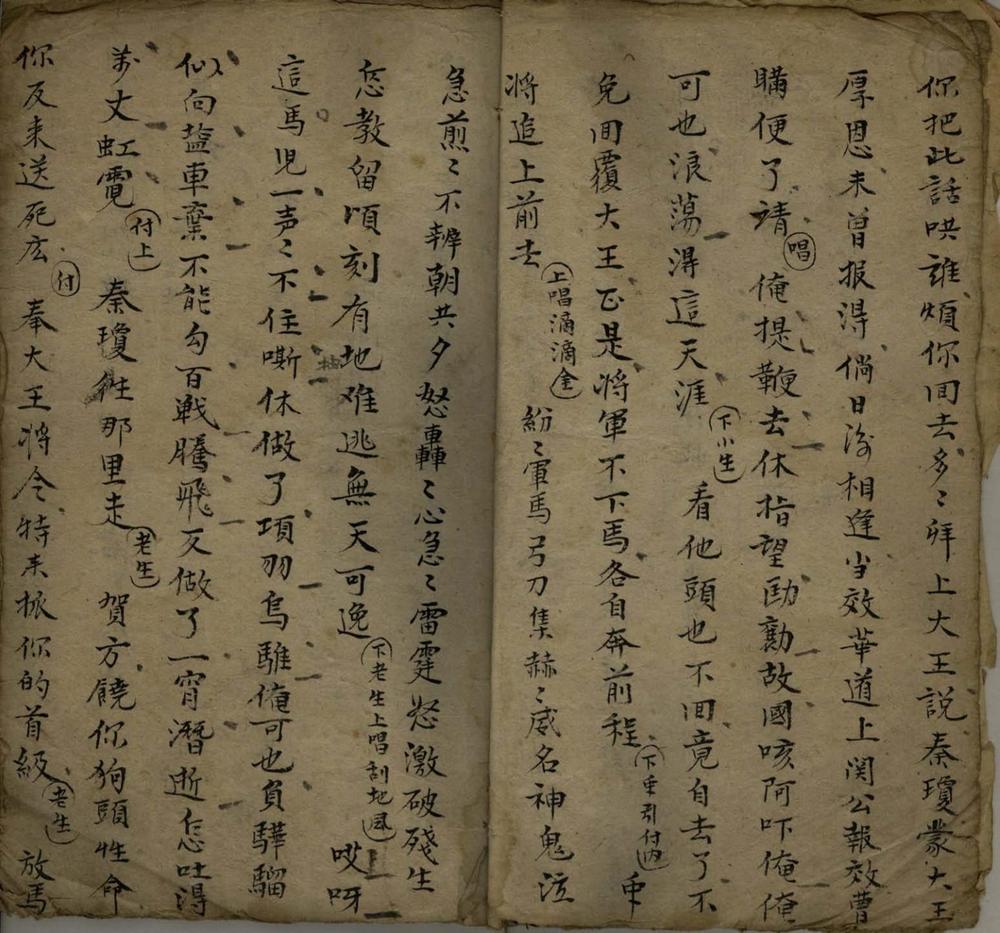 你把此話哄誰煩你回去多〻拜上大王説秦瓊蒙大王
厚恩未曾报淂倘日後相逢当效華道上関公報效曹
瞞便了請(唱)俺提鞭去休指望勸故國咳阿吓俺俺
可也浪蕩淂這天涯(下小生)看他頭也不回竟自去了不
免回覆大王正是将軍不下馬各自奔前程(下 引付内)
将追上前去(上唱滴滴金)紛〻軍馬弓刀集赫〻威名神鬼泣
急煎〻不辨朝共夕怒轟〻心急〻雷霆怒激破殘生
怎教留頃刻有地难逃無天可逸(下老生上唱刮地風)哎呀
這馬児一声〻不住嘶休做了項羽烏騅俺可也負驊騮
似向盐車棄不能勾百戦騰飛又做了一宵潛逝怎吐得
萬丈虹霓(付上)秦瓊往那里走(老生)賀方饒你狗頭性命
你反来送死広(付)奉大王将令特来扳你的首級(老生)放馬